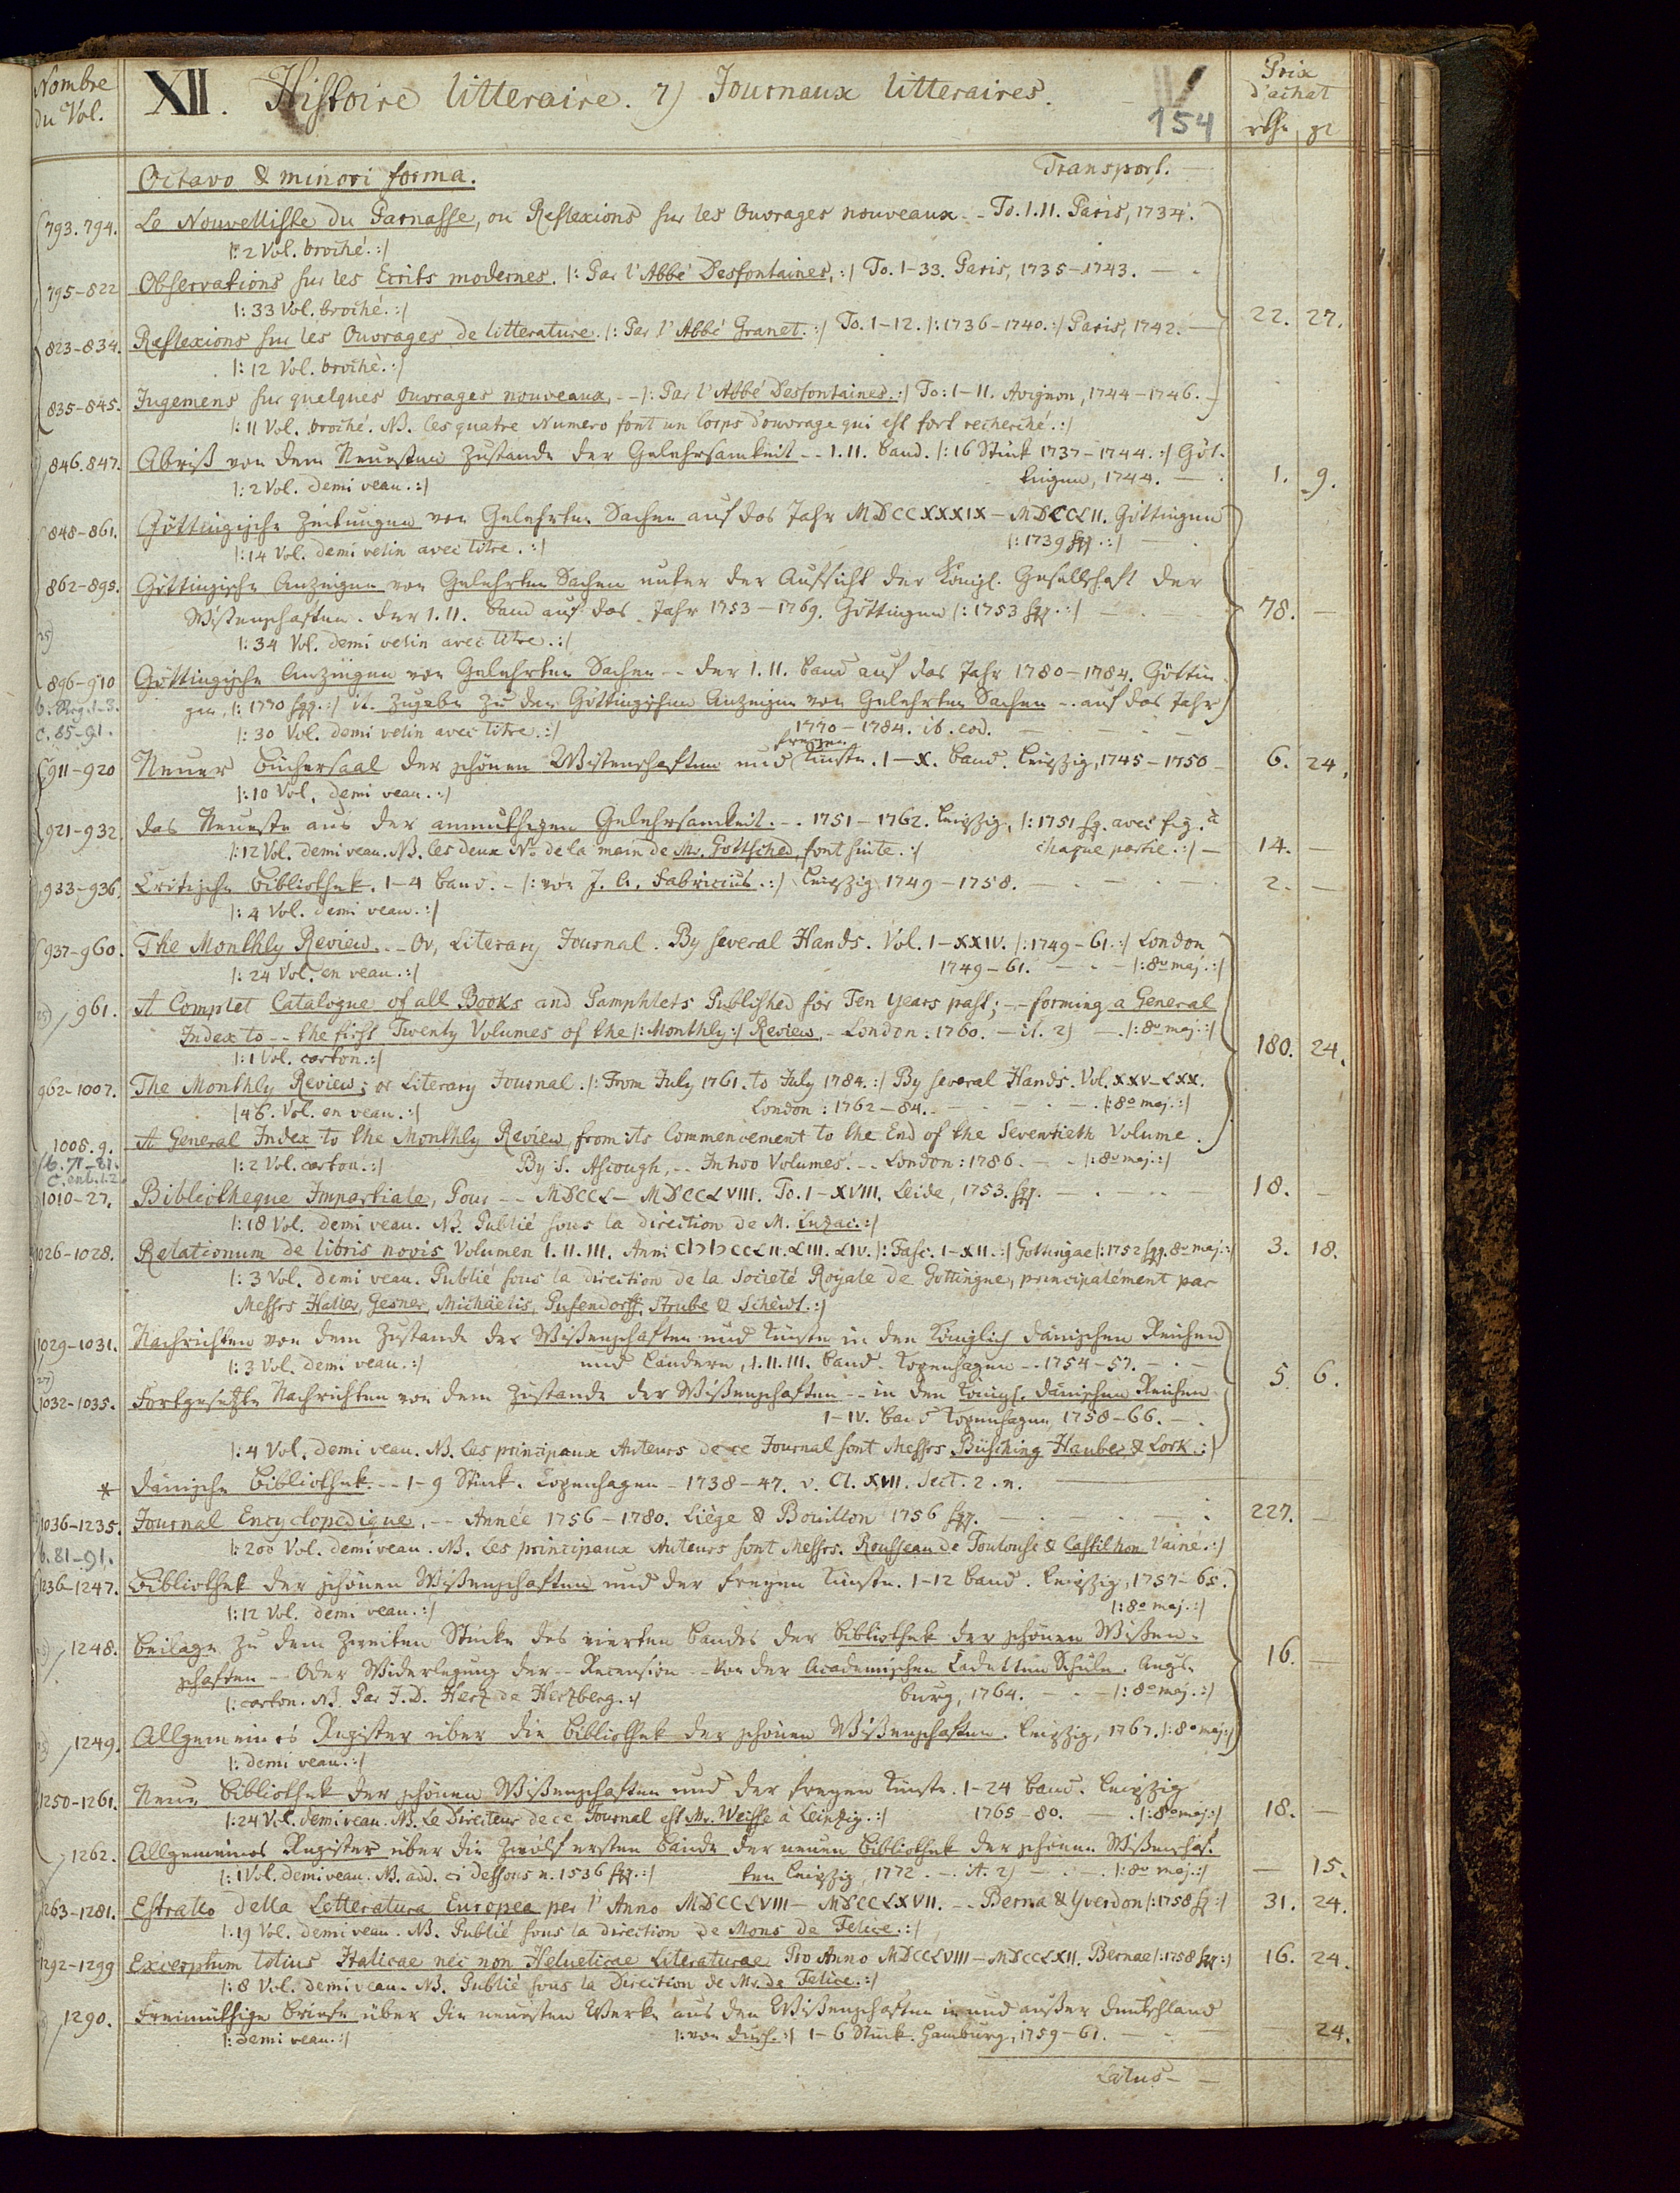 Nombre du Vol.
XII. Histoire litteraire. 7) Journaux litteraires.
154
Prix d'achat
rthr gr
Octavo & minori forma. Transport. —
793. 794. Le Nouvelliste du Parnasse, ou Reflexions sur les Ouvrages nouveaux - - To. I. II. Paris, 1734.
|: 2 Vol. broché. :|
795-822 Observations sur les Ecrits modernes. |: Par l'Abbé Desfontaines. :| To. 1-33. Paris, 1735-1743. —
|: 33 Vol. broché. :|
22. 27.
823-834. Reflexions sur les Ouvrages de litterature. |: Par l'Abbé Granet. :| To. 1-12. |: 1736-1740. :| Paris, 1742. —
|: 12 Vol. broché. :|
835-845. Jugemens sur quelques Ouvrages nouveaux. - - |: Par l'Abbé Desfontaines. :| To: 1-11. Avignon, 1744-1746. —
|: 11 Vol. broché. NB. les quatre Numero font un Corps d'ouvrage qui est fort recherché. :|
846. 847. Abriß von dem Neuesten Zustande der Gelehrsamkeit - - I. II. Band. |: 16 Stück 1737-1744. :| Göt-
|: 2 Vol. demi veau. :| tingen, 1744. — 1. 9.
848-861. Göttingische Zeitungen von Gelehrten Sachen auf das Jahr MDCCXXXIX - MDCCLII. Göttingen
|: 14 Vol. demi velin avec titre. :| |: 1739 sqq. :| —
862-895. Göttingische Anzeigen von Gelehrten Sachen unter der Aufsicht der Königl. Gesellschaft der
Wißenschaften. der I. II. Band auf das Jahr 1753-1769. Göttingen |: 1753 sqq. :| 78. —
|: 34 Vol. demi velin avec titre. :|
896-910 Göttingische Anzeigen von Gelehrten Sachen - - der I. II. Band auf das Jahr 1780-1784. Göttin-
b. Reg. 1-3. gen, |: 1770 sqq. :| it. Zugabe zu den Göttingischen Anzeigen von Gelehrten Sachen - - auf das Jahr
c. 85-91. |: 30 Vol. demi velin avec titre. :| 1770-1784. ib. eod. —
911-920 Neuer Büchersaal der schönen Wißenschaften und freyen Künste. I-X. Band. Leipzig, 1745-1750 - 6. 24.
|: 10 Vol. demi veau. :|
921-932. Das Neueste aus der anmuthigen Gelehrsamkeit. - - 1751-1762. Leipzig, |: 1751 sq. avec fig. à
|: 12 Vol. demi veau. NB. les deux No de la main de Mr. Gottsched, font suite. :| chaque partie. :| — 14. —
933-936. Critische Bibliothek. 1-4 Band. - |: von J. A. Fabricius. :| Leipzig 1749-1758. — 2. —
|: 4 Vol. demi veau. :|
937-960. The Monthly Review. - - Or, Literary Journal. By several Hands. Vol. I-XXIV. |: 1749-61. :| London
|: 24 Vol. en veau. :| 1749-61. — |: 8o maj. :|
961. A Complet Catalogue of all Books and Pamphlets Published for Ten years past; - - forming a General
Index to - - the first Twenty Volumes of the |: Monthly :| Review. - London: 1760. - it. 2) — |: 8o maj. :|
|: 1 Vol. carton. :|
180. 24.
962-1007. The Monthly Review; or Literary Journal. |: From July 1761. to July 1784. :| By several Hands. Vol. XXV-LXX.
|: 46. Vol. en veau. :| London: 1762-84. — |: 8o maj. :|
1008. 9. A General Index to the Monthly Review, from its Commencement to the End of the Seventieth Volume.
b. 71-81. |: 2 Vol. carton. :| By S. Ascough, - - In two Volumes. - - London: 1786. — |: 8o maj. :|
1010-27. Bibliotheque Impartiale, Pour - - MDCCL - MDCCLVIII. To. I-XVIII. Leide, 1753. sqq. — 18. —
|: 18 Vol. demi veau. NB. Publié sous la direction de M. Luzac. :|
1026-1028. Relationum de libris novis Volumen I. II. III. Anni CIƆIƆCCLII. LIII. LIV. |: Fasc. I-XII. :| Gottingae |: 1752 sqq. 8o maj. :| 3. 18.
|: 3 Vol. demi veau. Publié sous la direction de la Societé Royale de Gottingue, principalément par
Messrs Haller, Gesner, Michaëlis, Pufendorff, Strube & Scheidt. :|
1029-1031. Nachrichten von dem Zustande der Wißenschaften und Künste in den Königlich dänischen Reichen
|: 3 Vol. demi veau. :| und Ländern, I. II. III. Band. Kopenhagen - - 1754-57. —
5. 6.
1032-1035. Fortgesetzte Nachrichten von dem Zustande der Wißenschaften - - in den Königl. dänischen Reichen
I-IV. Band Kopenhagen, 1758-66. —
|: 4 Vol. demi veau. NB. Les principaux Auteurs de ce Journal sont Messrs Büsching Hauber & Lork. :|
* Dänische Bibliothek. - - 1-9 Stück. Copenhagen - 1738-47. v. Cl. XVII. Sect. 2. n. —
1036-1235. Journal Encyclopedique. - - Année 1756-1780. Liège & Bouillon 1756 sqq. — 227. —
b. 81-91. |: 200 Vol. demi veau. NB. Les principaux Auteurs sont Messrs. Rousseau de Toulouse & Castilhon l'ainé. :|
1236-1247. Bibliothek der schönen Wißenschaften und der freyen Künste. 1-12 Band. Leipzig, 1757-65.
|: 12 Vol. demi veau. :| |: 8o maj. :|
1248. Beilage zu dem Zweiten Stücke des vierten Bandes der Bibliothek der schönen Wißen-
schaften - - Oder Widerlegung der - - Recension - - Von der Academischen Cadetten Schule. Augs-
|: carton. NB. Par J. D. Herz de Herzberg. :| burg, 1764. — |: 8o maj. :|
16. —
1249. Allgemeines Register über die Bibliothek der schönen Wißenschaften. Leipzig, 1767. |: 8o maj :|
|: demi veau. :|
1250-1261. Neue Bibliothek der schönen Wißenschaften und der freyen Künste. 1-24 Band. Leipzig
|: 24 Vol. demi veau. NB. Le Directeur de ce Journal est Mr. Weisse à Leipzig. :| 1765-80. — |: 8o maj :| 18. —
1262. Allgemeines Register über die Zwölf ersten Bände der neuen Bibliothek der schönen Wißenschaf-
|: 1 Vol. demi veau. NB. add. ci dessous n. 1536 sqq. :| ten Leipzig, 1772. - it. 2) — |: 8o maj. :| — 15.
1263-1281. Estratto della Letteratura Europea per l'Anno MDCCLVIII - MDCCLXVII. - - Berna & Yverdon |: 1758 sq :| 31. 24.
|: 19 Vol. demi veau. NB. Publié sous la direction de Mons de Felice. :|
1292-1299 Excerptum totius Italicae nec non Helveticae Literaturae Pro Anno MDCCLVIII - MDCCLXII. Bernae |: 1758 sqq :| 16. 24.
|: 8 Vol. demi veau. NB. Publié sous la Direction de Mr. de Felice. :|
1290. Freimüthige Briefe über die neuesten Werke aus den Wißenschaften in und außer Deutschland
|: demi veau. :| 1-6 Stück. Hamburg, 1759-61. — 24.
Latus —